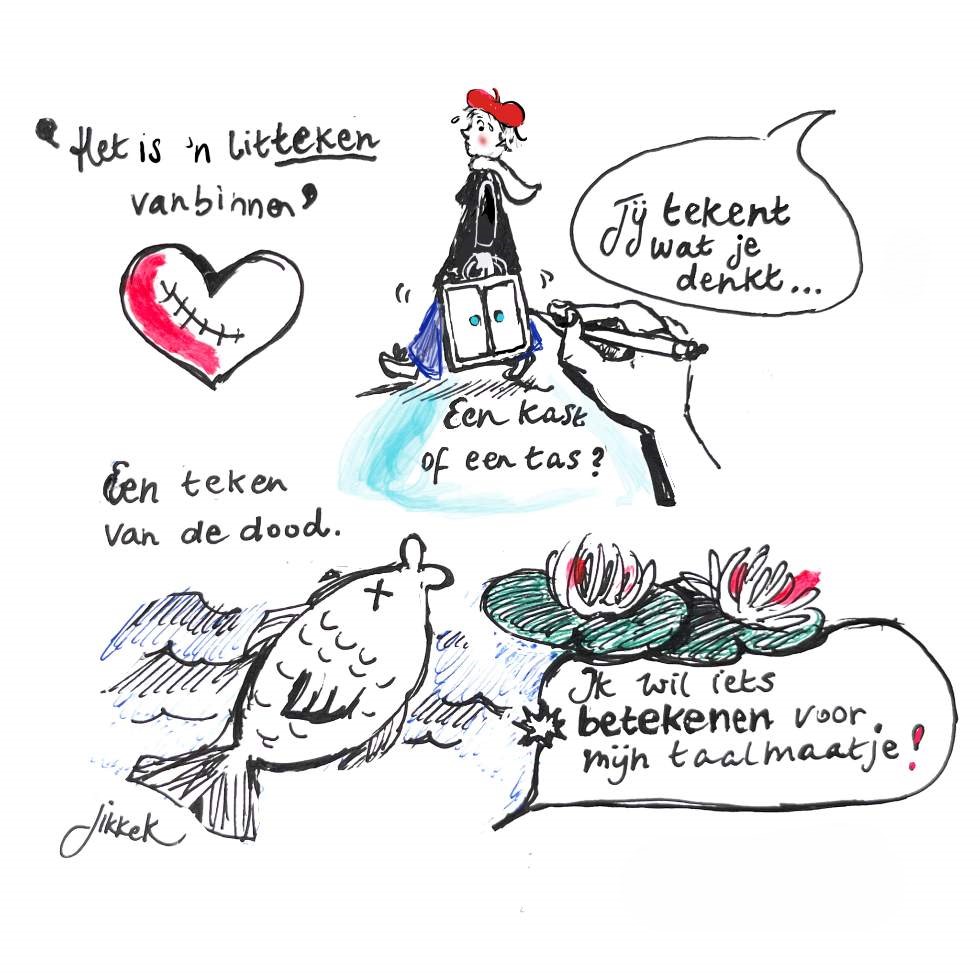 ❛ Het is 'n litteken
vanbinnen❜
Jij tekent
wat je
denkt...
Een kast
of een tas?
Een teken
van de dood.
Ik wil iets
betekenen voor
mijn taalmaatje!
JikkeK